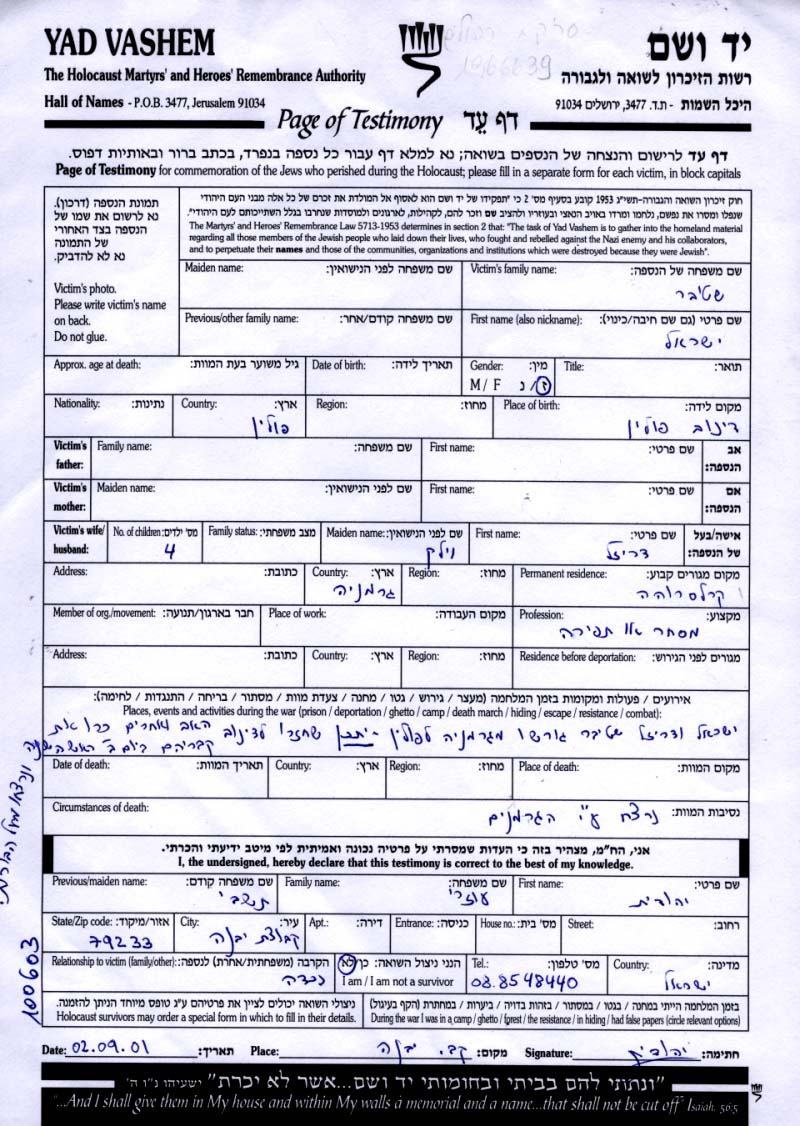 YAD VASHEM
The Holocaust Martyrs' and Heroes' Remembrance Authority
Hall of Names - P.O.B. 3477, Jerusalem 91034
1066639
יד ושם
רשות הזיכרון לשואה ולגבורה
היכל השמות - ת.ד. 3477, ירושלים 91034
Page of Testimony דף עֵד
דף עֵד לרישום והנצחה של הנספים בשואה; נא למלא דף עבור כל נספה בנפרד, בכתב ברור ובאותיות דפוס.
Page of Testimony for commemoration of the Jews who perished during the Holocaust; please fill in a separate form for each victim, in block capitals
תמונת הנספה (דרכון).
נא לרשום את שמו של
הנספה בצד האחורי
של התמונה
נא לא להדביק.
Victim's photo.
Please write victim's name
on back.
Do not glue.
חוק זיכרון השואה והגבורה-תשי"ג 1953 קובע בסעיף מס' 2 כי "תפקידו של יד ושם הוא לאסוף אל המולדת את זכרם של כל אלה מבני העם היהודי
שנפלו ומסרו את נפשם, נלחמו ומרדו באויב הנאצי ובעוזריו ולהציב שם וזכר להם, לקהילות, לארגונים ולמוסדות שנחרבו בגלל השתייכותם לעם היהודי".
The Martyrs' and Heroes' Remembrance Law 5713-1953 determines in section 2 that: "The task of Yad Vashem is to gather into the homeland material
regarding all those members of the Jewish people who laid down their lives, who fought and rebelled against the Nazi enemy and his collaborators,
and to perpetuate their names and those of the communities, organizations and institutions which were destroyed because they were Jewish".
Maiden name: שם משפחה לפני הנישואין: Victim's family name: שם משפחה של הנספה:
שטיבר
Previous/other family name: שם משפחה קודם/אחר: First name (also nickname): שם פרטי (גם שם חיבה/כינוי):
ישראל
Approx. age at death: גיל משוער בעת המוות: Date of birth: תאריך לידה: Gender: מין: Title: תואר:
M / F ז / נ
Nationality: נתינות: Country: ארץ: Region: מחוז: Place of birth: מקום לידה:
פולין דינוב פולין
Victim's father: Family name: שם משפחה: First name: שם פרטי: אב הנספה:
Victim's mother: Maiden name: שם לפני הנישואין: First name: שם פרטי: אם הנספה:
Victim's wife/ husband: No. of children: מס' ילדים: Family status: מצב משפחתי: Maiden name: שם לפני הנישואין: First name: שם פרטי: אישה/בעל של הנספה:
4 וילק דריזל
Address: כתובת: Country: ארץ: Region: מחוז: Permanent residence: מקום מגורים קבוע:
גרמניה קרלסרוהה
Member of org./movement: חבר בארגון/תנועה: Place of work: מקום העבודה: Profession: מקצוע:
מסחר או תפירה
Address: כתובת: Country: ארץ: Region: מחוז: Residence before deportation: מגורים לפני הגירוש:
אירועים / פעולות ומקומות בזמן המלחמה (מעצר / גירוש / גטו / מחנה / צעדת מוות / מסתור / בריחה / התנגדות / לחימה):
Places, events and activities during the war (prison / deportation / ghetto / camp / death march / hiding / escape / resistance / combat):
ישראל ודריזל שטיבר גורשו מגרמניה לפולין - יתכן שחזרו לדינוב האב ואחרים כרו את
קבריהם ביום ב' ראש השנה
ונרצחו
Date of death: תאריך המוות: Country: ארץ: Region: מחוז: Place of death: מקום המוות:
Circumstances of death: נסיבות המוות:
נרצח ע"י הגרמנים
אני, הח"מ, מצהיר בזה כי העדות שמסרתי על פרטיה נכונה ואמיתית לפי מיטב ידיעתי והכרתי.
I, the undersigned, hereby declare that this testimony is correct to the best of my knowledge.
Previous/maiden name: שם משפחה קודם: Family name: שם משפחה: First name: שם פרטי:
תשבי עוזרי יהודית
State/Zip code: אזור/מיקוד: City: עיר: Apt.: דירה: Entrance: כניסה: House no.: מס' בית: Street: רחוב:
79233 קבוצת יבנה
Relationship to victim (family/other): הקרבה (משפחתית/אחרת) לנספה: הנני ניצול השואה: כן/לא Tel.: מס' טלפון: Country: מדינה:
נכדה I am / I am not a survivor 08.8548440 ישראל
ניצולי השואה יכולים לציין את פרטיהם ע"ג טופס מיוחד הניתן להזמנה.
Holocaust survivors may order a special form in which to fill in their details.
בזמן המלחמה הייתי במחנה / בגטו / במסתור / בזהות בדויה / ביערות / במחתרת (הקף בעיגול)
During the war I was in a camp / ghetto / forest / the resistance / in hiding / had false papers (circle relevant options)
100603
Date: 02.09.01 תאריך: Place: קב. יבנה מקום: Signature: יהודית חתימה:
"ונתתי להם בביתי ובחומותי יד ושם...אשר לא יכרת" ישעיהו נ"ו ה'
"...And I shall give them in My house and within My walls a memorial and a name...that shall not be cut off" Isaiah, 56:5